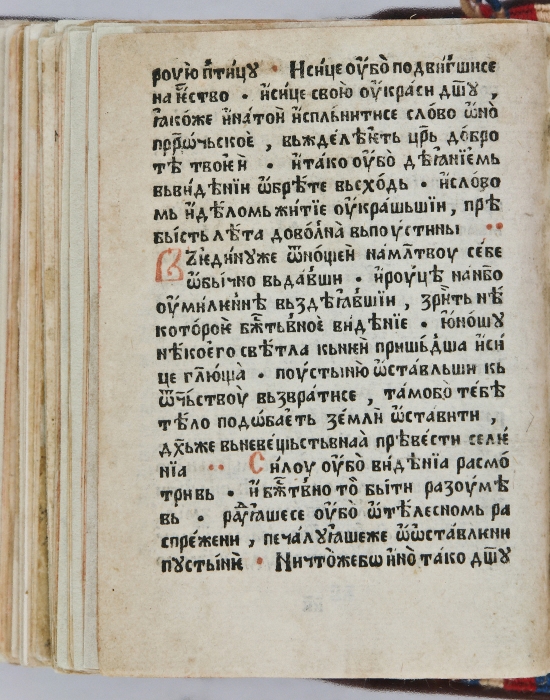 ровую птицу · И сице оубо подвигшисе
на кѥство · и сице свою оукраси дш҃у ,
ꙗкоже и на той исплънитисе слово ѡно
прⷪ҇рѡчьскоѐ , вьжделѣѥть цр҃ь добро
тѣ твоѥи · и тако оубо дѣꙗнїемь
вь видѣнїи ѡбрѣте вьсходь · и слово
мь и дѣломь житїе оукрашьшїи , прѣ
бысть лѣта довол̑на вь поустыни ··
Въ ѥдину же ѿ нощеи на мл҃твоу себе
ѡбычно вьдавши · и роуцѣ на нб҃о
оумилѥннѣ въздѣꙗвшїи , зрить нѣ
которой бж҃ьтвное видѣнїе · юношу
нѣкоего свѣтла кь ней пришьдша и си
це гл҃юща · поустыню ѡставльши кь
ѿчьствоу възвратисе , тамо бо тебѣ
тѣло подѡбаѐть земли ѡставити ,
дх҃ь же вь невещьствьнаа прѣвести селѥ
нїа ·· Силоу оубо видѣнїа расмо
тривь · и бж҃тьвно то быти разоумѣ
вь · радꙋꙗшесе оубо ѡ тѣлесномь ра
спрежени , печалꙋꙗше же ѡ ѡставлѥни
пустынѥ · Ничтоже бѡ ино тако дш҃у